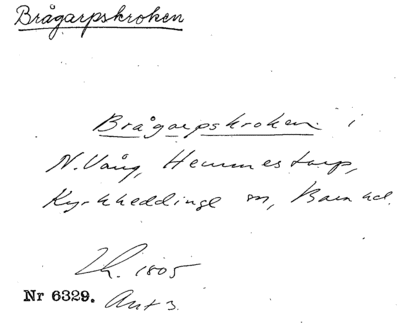 Brågarpskroken
Brågarpskroken i
N. Vång, Hemmestorp,
Kyrkheddinge sn, Bara hd.
Lh. 1805
Nr 6329. Ant 3.